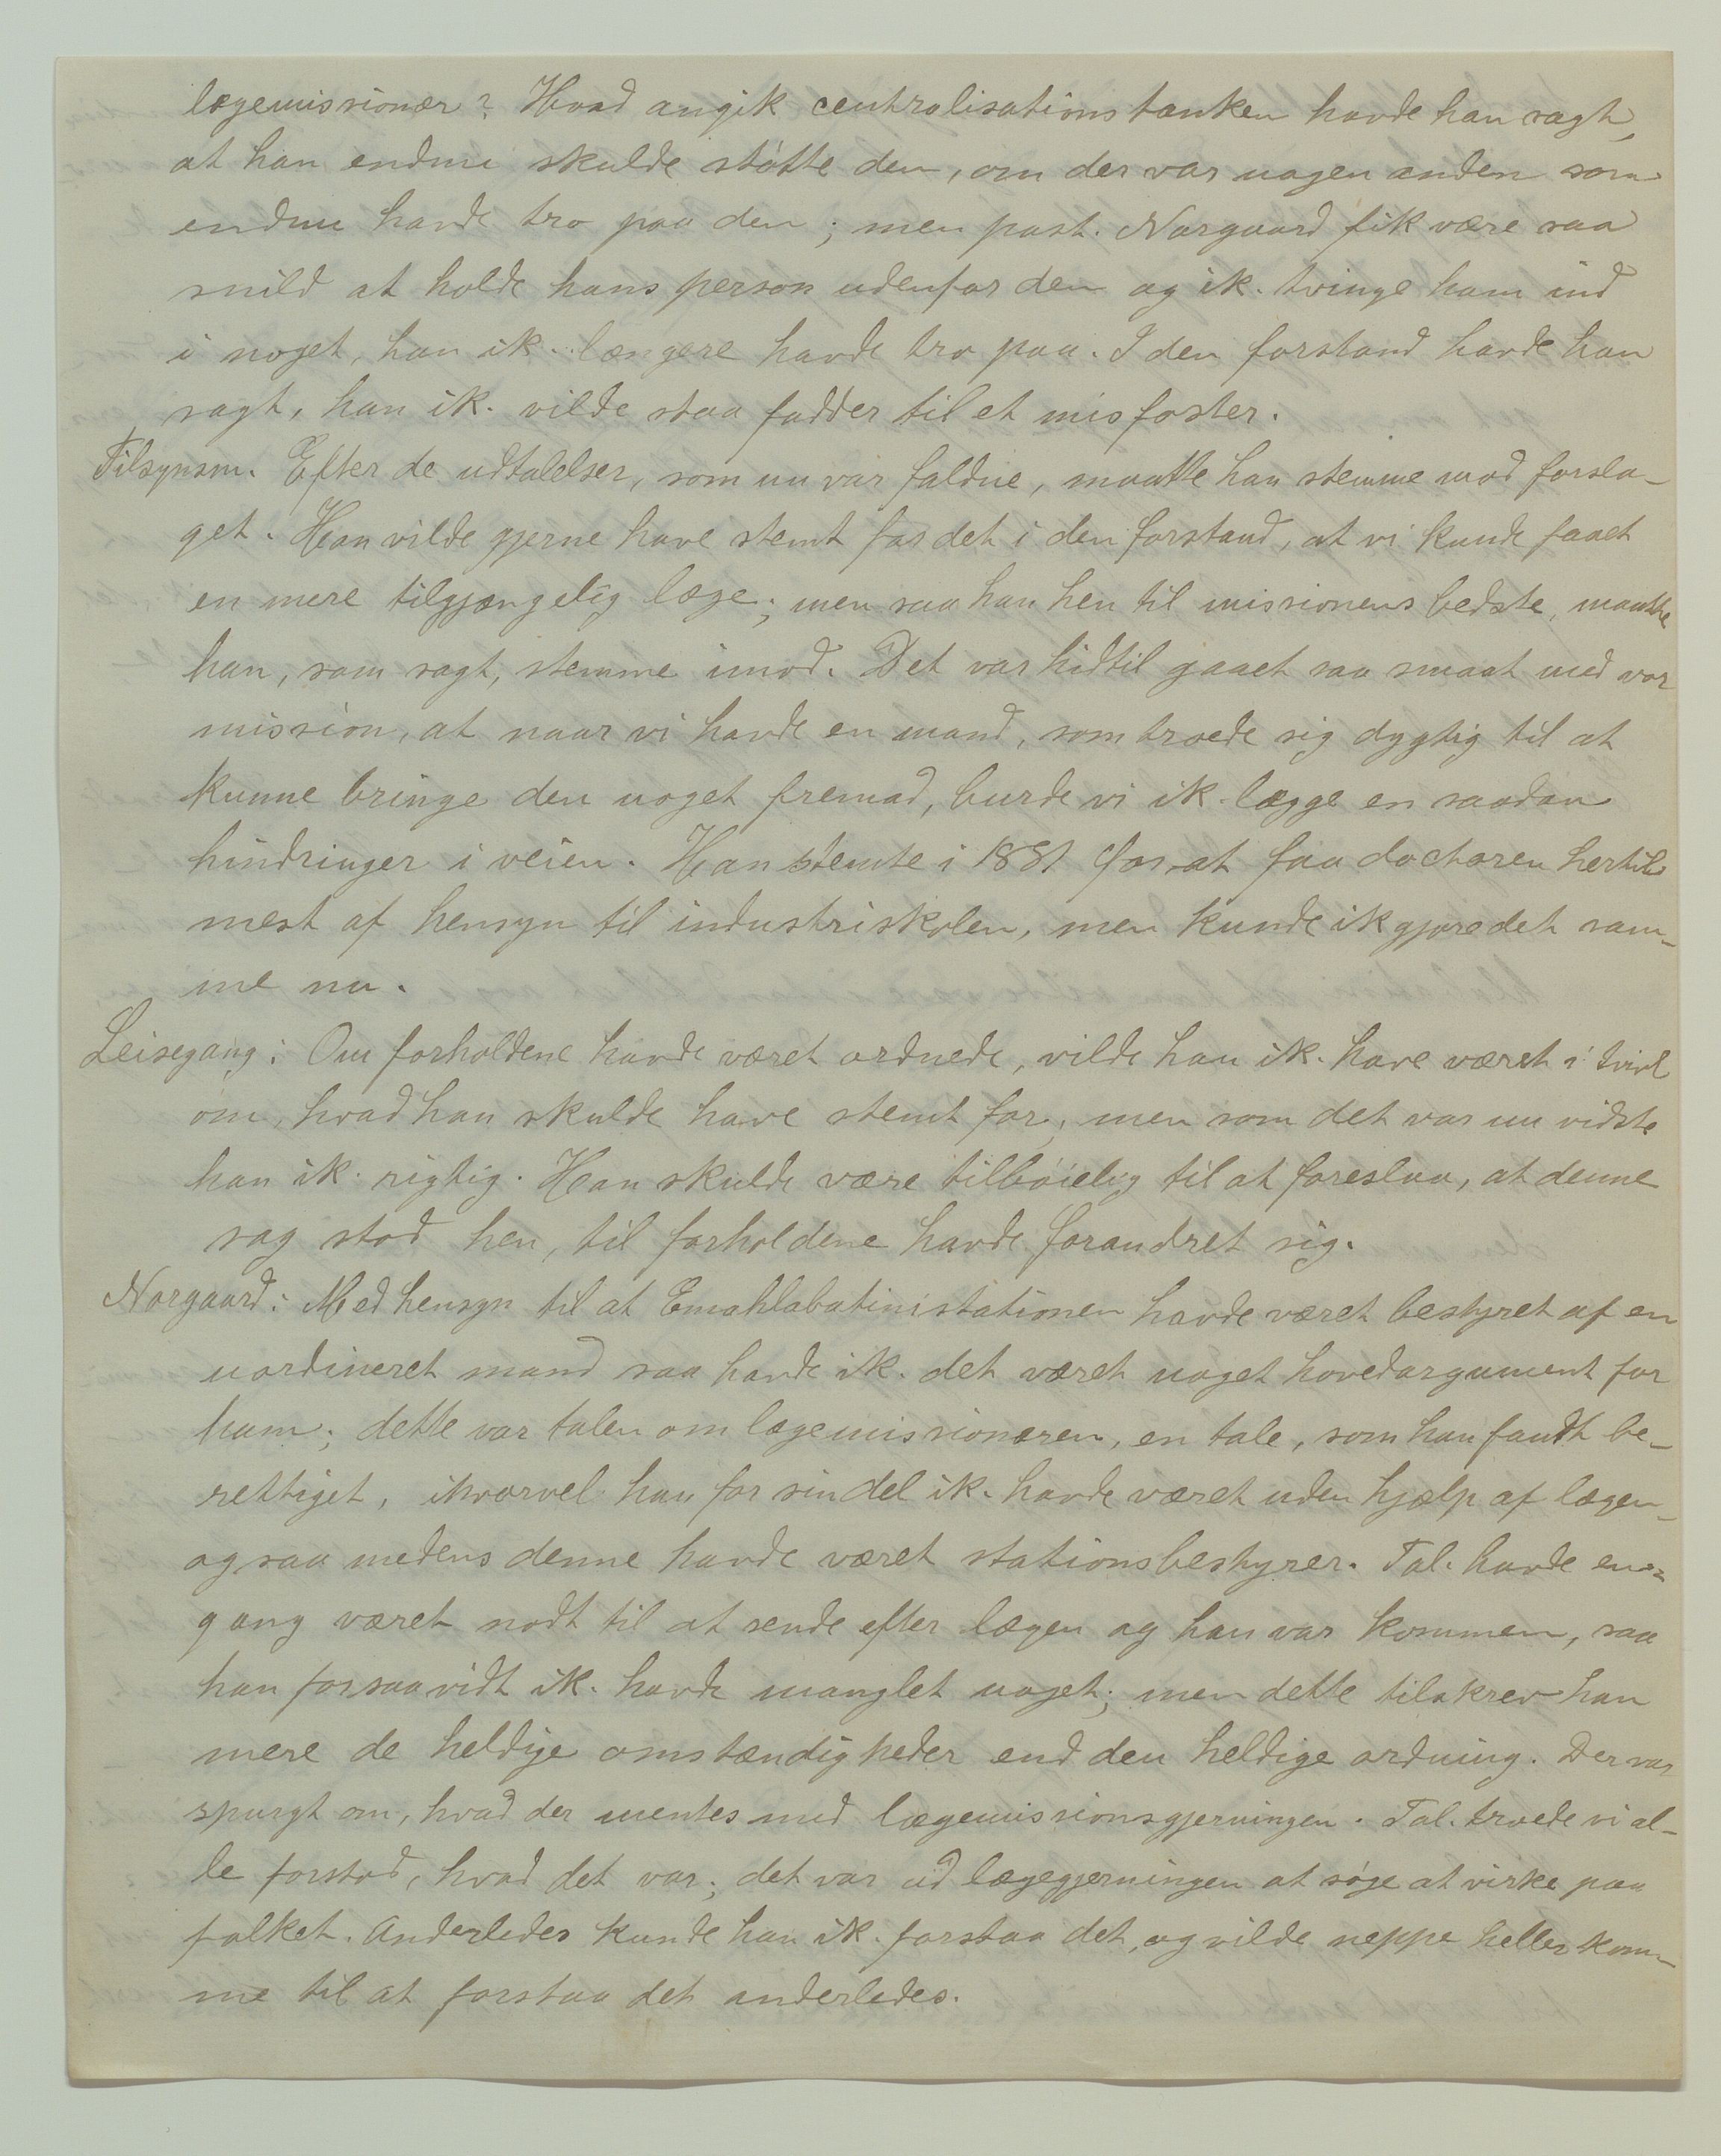 lægemissionær? Hvad angik centralisationstanken havde han sagt,
at han endnu skulde støtte den, om der var nogen anden som
endnu havde tro paa den; men past. Norgaard fik være saa
snild at holde hans person udenfor den og ik. tvinge ham ind
i noget, han ik. længere havde tro paa. I den forstand havde han
sagt, han ik. vilde staa fadder til et misfoster.
Tilsynsm. Efter de udtalelser, som nu var faldne, maatte han stemme mod forsla-
get. Han vilde gjerne have stemt for det i den forstand, at vi kunde faaet
en mere tilgjængelig læge; men saa han hen til missionens bedste, maatte
han, som sagt, stemme imod. Det var hidtil gaaet saa smaat med vor
mission, at naar vi havde en mand, som troede sig dygtig til at
kunne bringe den noget fremad, burde vi ik. lægge en saadan
hindringer i veien. Han stemte i 1881 for at faa doctoren hertil
mest af hensyn til industriskolen, men kunde ik gjøre det sam-
me nu.
Leisegang: Om forholdene havde været ordnede, vilde han ik. have været i tvivl
om, hvad han skulde have stemt for; men som det var nu vidste
han ik. rigtig. Han skulde være tilbøielig til at foreslaa, at denne
sag stod hen, til forholdene havde forandret sig.
Norgaard: Med hensyn til at Emahlabatinistationen havde været bestyret af en
uordineret mand saa havde ik. det været noget hovedargument for
ham; dette var talen om lægemissionæren, en tale, som han fandt be-
rettiget, ihvorvel han for sin del ik. havde været uden hjælp af lægen
ogsaa medens denne havde været stationsbestyrer. Tal. havde en=
gang været nødt til at sende efter lægen og han var kommen, saa
han forsaavidt ik. havde manglet noget; men dette tilskrev han
mere de heldige omstændigheder end den heldige ordning. Der var
spurgt om, hvad der mentes med lægemissionsgjerningen. Tal. troede vi al-
le forstod, hvad det var; det var ved lægegjerningen at søge at virke paa
folket. Anderledes kunde han ik. forstaa det, og vilde neppe heller kom-
me til at forstaa det anderledes.